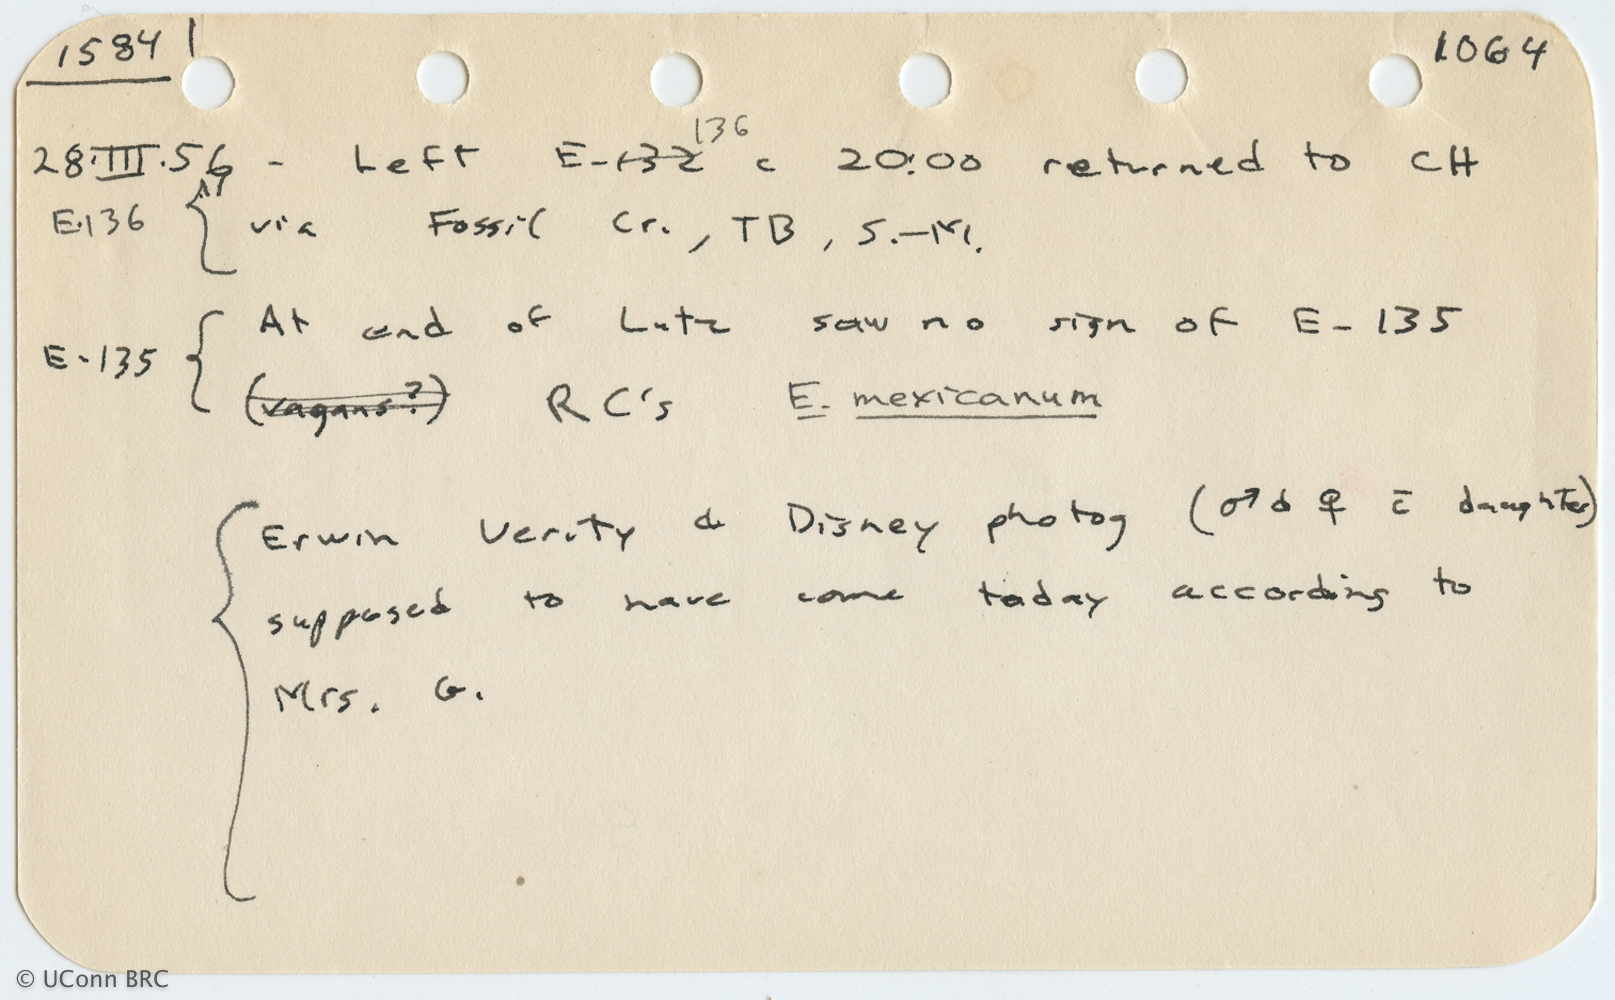 1584 1064
136
28.III.56 - Left E-132 c 20:00 returned to CH
E-136 via Fossil Cr., TB, S.-M.
At end of Lutz saw no sign of E-135
E-135
(vagans?) RC's E. mexicanum
Erwin Verity & Disney photog (♂ & ♀ c̄ daughter)
supposed to have come today according to
Mrs. G.
© UConn BRC